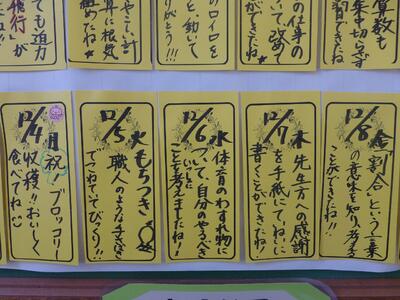 ても迫力
飛行」が
!!
やこい計
算に根気
極めたね
のロイロを
と、動いて
りがとう!!
の仕事の
いて、改めて
ができたね!
算数も
年中切らず
習できたね!
12/4 月 祝! ブロッコリー
収穫!! おいしく
食べてね
12/5 火 もちつき
職人のような手さばき
でつねていてびっくり!!
12/6 水 体育のわすれ物に
ついて、自分のやるべき
ことを考えましたね!
12/7 木 先生方への感謝
を手紙にていねいに
書くことができたね!
12/8 金 割合という言葉
の意味を知り、考える
ことができたね!